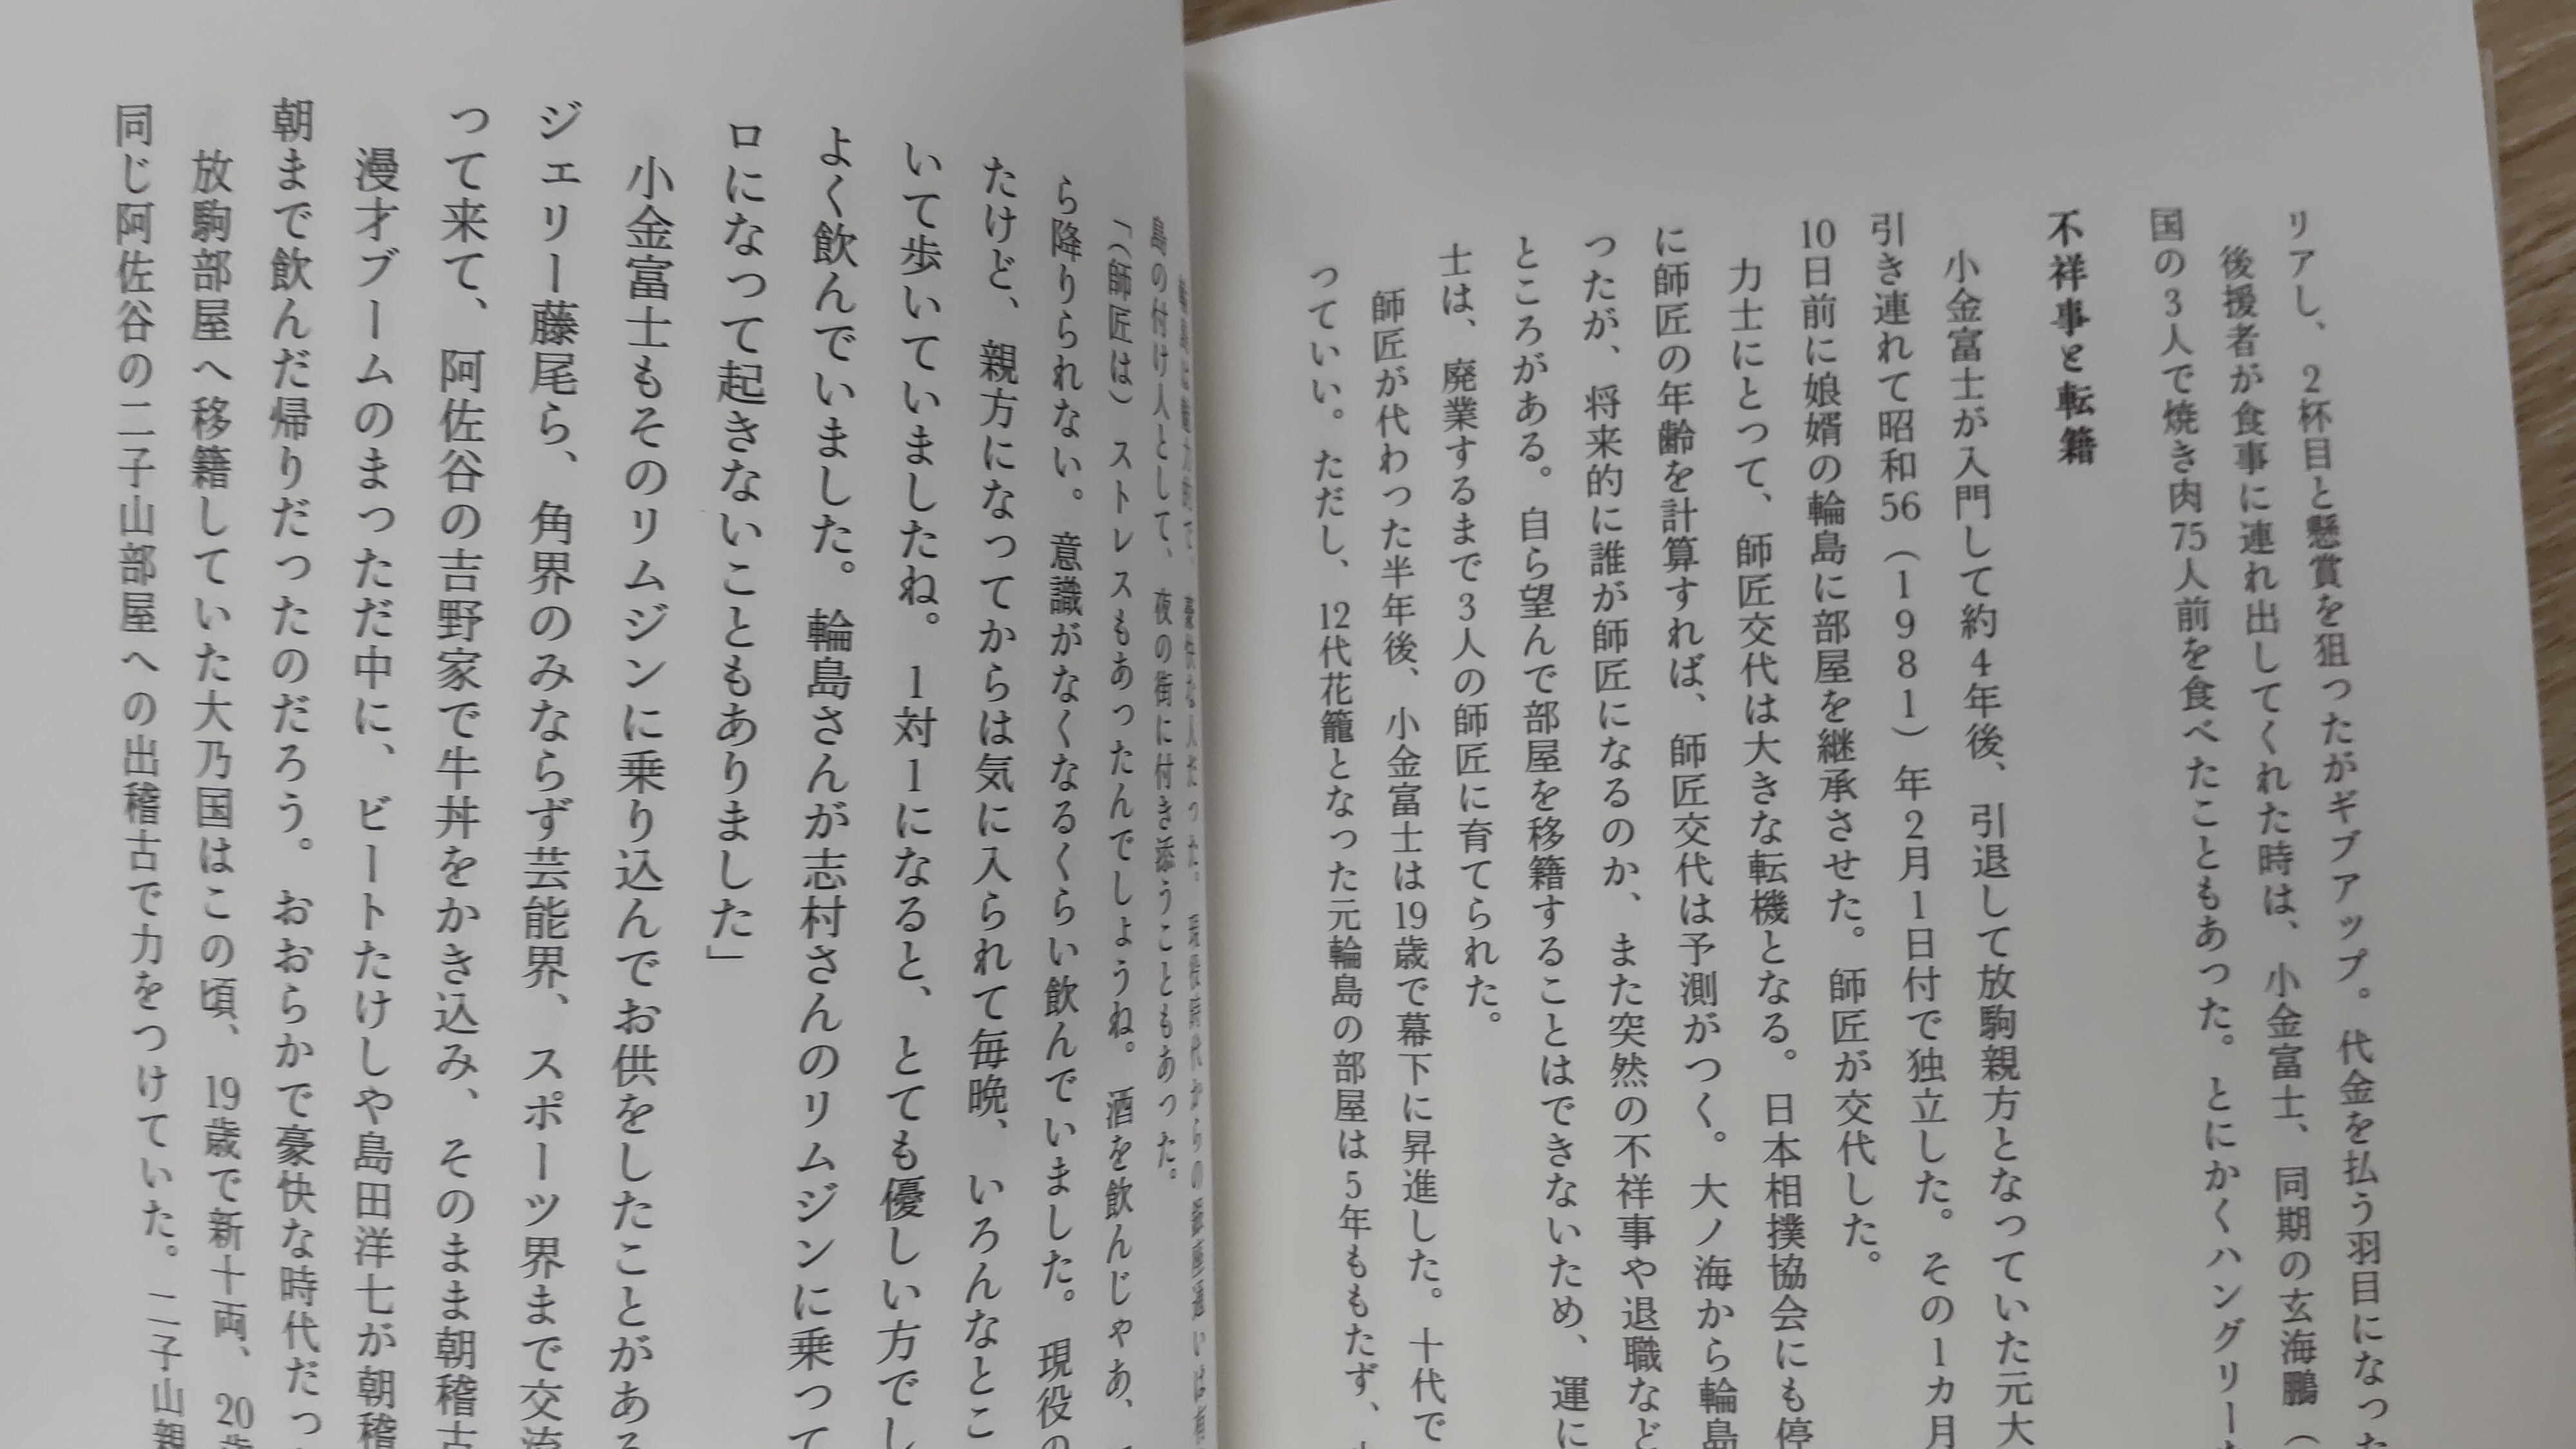 リアし、2杯目と懸賞を狙ったがギブアップ。代金を払う羽目になった
後援者が食事に連れ出してくれた時は、小金富士、同期の玄海鵬（
国の3人で焼き肉75人前を食べたこともあった。とにかくハングリー
不祥事と転籍
小金富士が入門して約4年後、引退して放駒親方となっていた元大
引き連れて昭和56（1981）年2月1日付で独立した。その1カ月
10日前に娘婿の輪島に部屋を継承させた。師匠が交代した。
力士にとって、師匠交代は大きな転機となる。日本相撲協会にも停
に師匠の年齢を計算すれば、師匠交代は予測がつく。大ノ海から輪島
ったが、将来的に誰が師匠になるのか、また突然の不祥事や退職など
ところがある。自ら望んで部屋を移籍することはできないため、運に
士は、廃業するまで3人の師匠に育てられた。
師匠が代わった半年後、小金富士は19歳で幕下に昇進した。十代で
っていい。ただし、12代花籠となった元輪島の部屋は5年ももたず、
輪島は魅力的で、豪快な人だった。現役時代からの銀座通いは有
島の付け人として、夜の街に付き添うこともあった。
「（師匠は）ストレスもあったんでしょうね。酒を飲んじゃあ、
ら降りられない。意識がなくなるくらい飲んでいました。現役の
たけど、親方になってからは気に入られて毎晩、いろんなとこ
いて歩いていましたね。1対1になると、とても優しい方でし
よく飲んでいました。輪島さんが志村さんのリムジンに乗って
ロになって起きないこともありました」
小金富士もそのリムジンに乗り込んでお供をしたことがある
ジェリー藤尾ら、角界のみならず芸能界、スポーツ界まで交流
って来て、阿佐谷の吉野家で牛丼をかき込み、そのまま朝稽古
漫才ブームのまっただ中に、ビートたけしや島田洋七が朝稽
朝まで飲んだ帰りだったのだろう。おおらかで豪快な時代だっ
放駒部屋へ移籍していた大乃国はこの頃、19歳で新十両、20歳
同じ阿佐谷の二子山部屋への出稽古で力をつけていた。二子山親